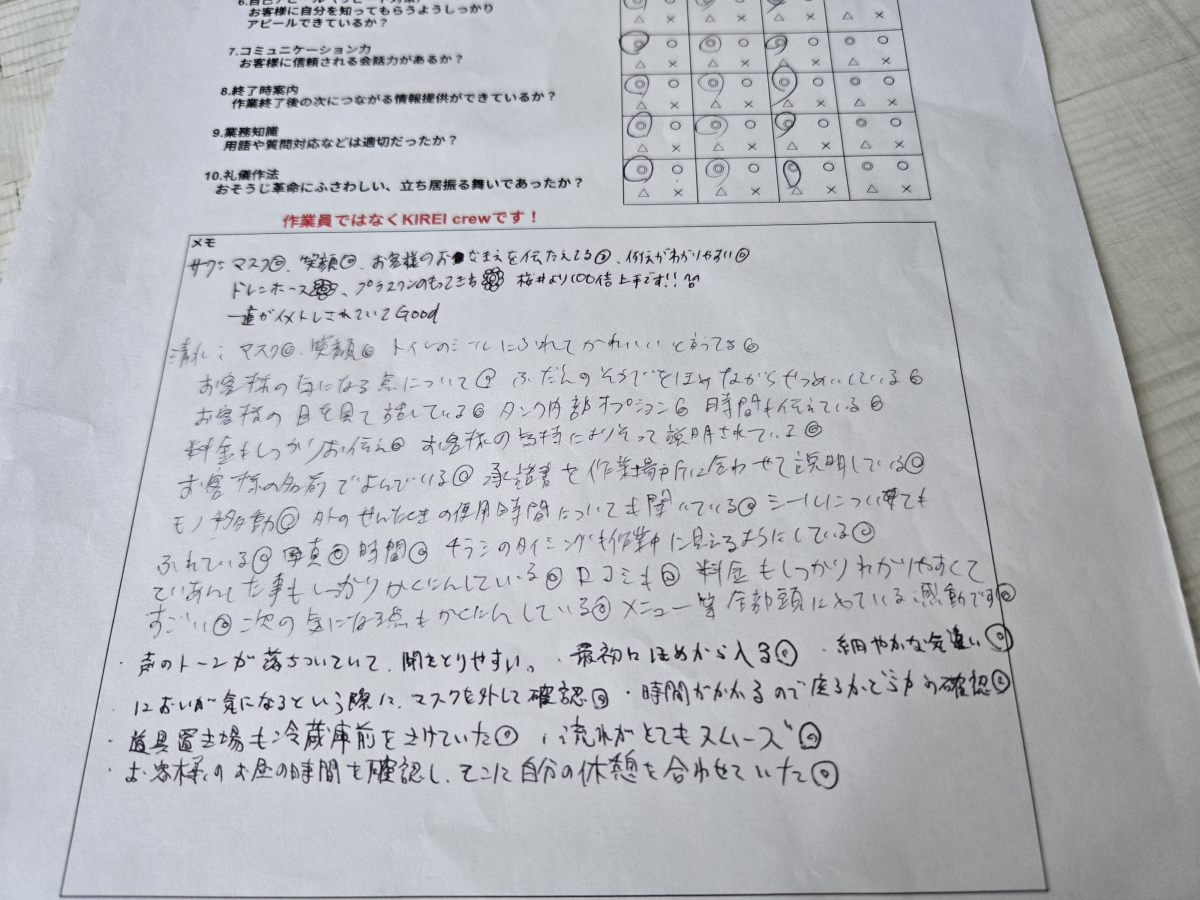 お客様に自分を知ってもらうようしっかり
アピールできているか?
7.コミュニケーション力
お客様に信頼される会話力があるか?
8.終了時案内
作業終了後の次につながる情報提供ができているか?
9.業務知識
用語や質問対応などは適切だったか?
10.礼儀作法
おそうじ革命にふさわしい、立ち居振る舞いであったか?
◎ ○ ◎ ○ ◎ ○ ◎ ○
△ × △ × △ × △ ×
作業員ではなくKIREI crewです!
メモ
マスク◎、笑顔◎、お客様のおなまえを伝たえてる◎、
ドレンホース 桜井より100倍上手です!!
Good
マスク◎ 笑顔◎ トイレのシールにふれてかわいいと言ってる◎
お客様の気になる点について◎ ふだんのそうじをほめながらせつめいしている◎
お客様の目を見て話している◎ タンク内部オプション◎ 時間も伝えている◎
料金もしっかりお伝え◎ お客様の気持によりそって説明されている◎
お客様の名前でよんでいる◎ 承諾書を作業場所に合わせて説明している◎
モノ移動◎ 外のせんたくきの使用時間についても聞いている◎ シールについても
ふれている◎ 写真◎ 時間◎ チラシのタイミングも作業中に見えるようにしている◎
ていあんした事もしっかりかくにんしている◎ 口コミも◎ 料金もしっかりわかりやすくて
すごい◎ 次の気になる点もかくにんしている◎ メニュー等全部頭に入っている感動です◎
・声のトーンが落ちついていて、聞きとりやすい。 ・最初にほめから入る◎ ・細やかな気遣い◎
においが気になるという際に、マスクを外して確認◎ ・時間がかかるので座るかどうかの確認◎
・道具置き場も冷蔵庫前をさけていた◎ 流れがとてもスムーズ◎
・お客様のお昼の時間を確認し、そこに自分の休憩を合わせていた◎